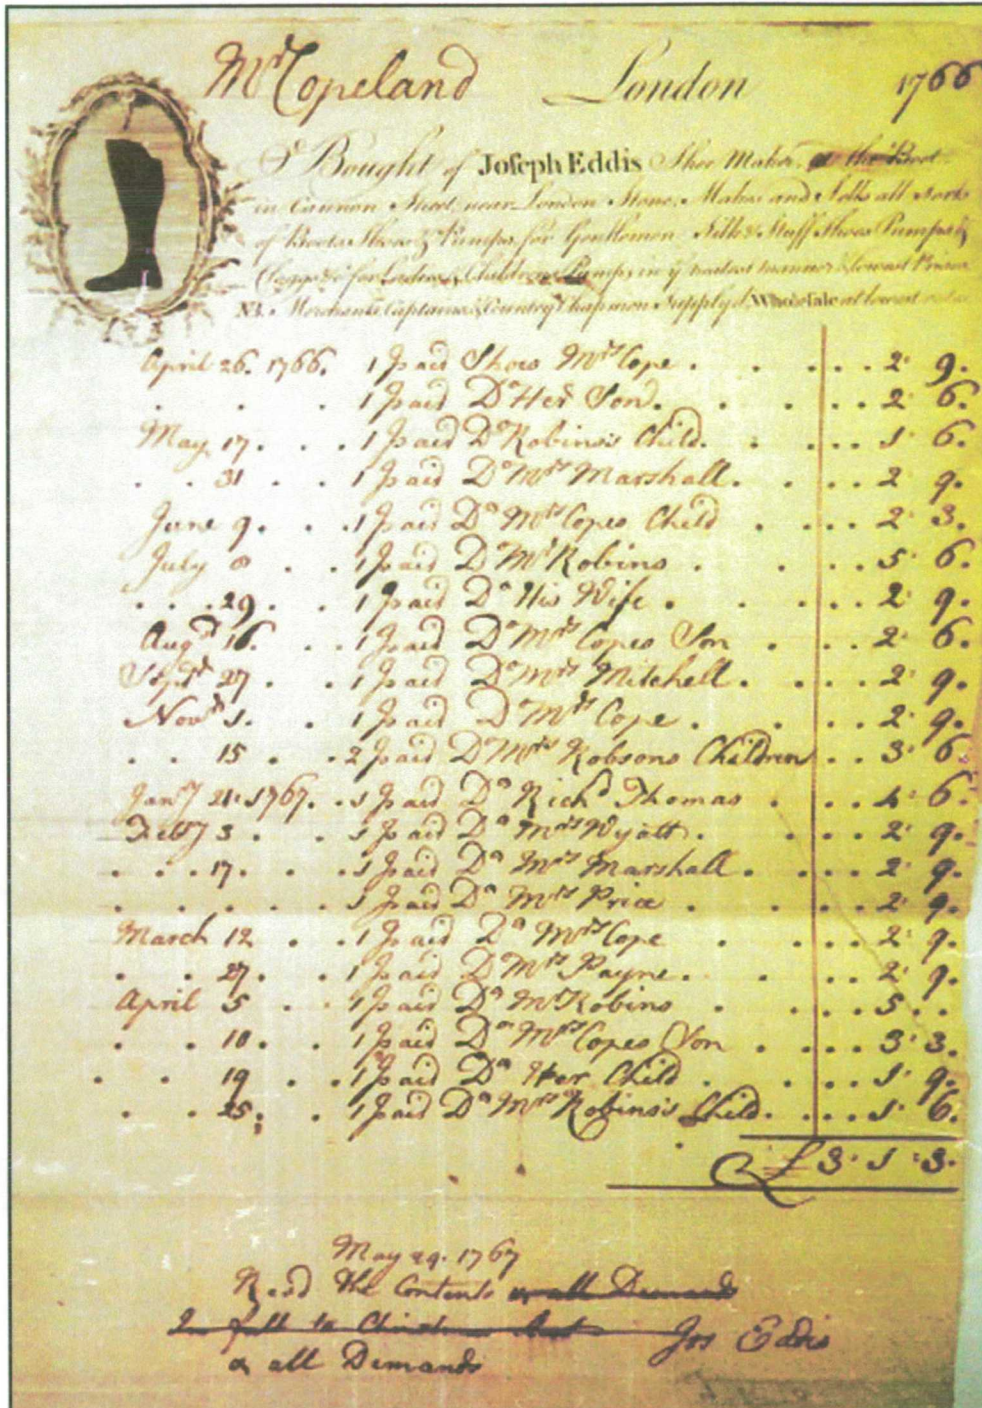 Mr Copeland London 1766
Bought of Joseph Eddis Shoe Maker, at the Boot
in Cannon Street, near London Stone, Makes and Sells all sorts
of Boots Shoes & Pumps, for Gentlemen Silk & Stuff Shoes Pumps &
Cloggs &c for Ladies, & Childrens Pumps in ye neatest manner & lowest Prices
NB. Merchants Captains & Country Chapmen Supply'd, Wholesale at lowest
April 26. 1766. 1 pair Shoes Mrs Cope 2 9.
1 pair Do Her Son. 2 6.
May, 17. 1 pair Do Robins's Child. 1 6.
31 1 pair Do Mrs Marshall. 2 9.
June 9. 1 pair Do Mrs Copes Child 2 3.
July 8 1 pair Do Mr Robins 5 6.
29. 1 pair Do His Wife 2 9.
Augst 16. 1 pair Do Mrs Copes Son 2 6.
Septr 27 1 pair Do Mrs Mitchell. 2 9.
Novr 1. 1 pair Do Mrs Cope 2 9.
15 2 pair Do Mrs Robsons Children 3 6.
Jany 21: 1767. 1 pair Do Richd Thomas 4 6.
Feby 3 1 pair Do Mrs Wyatt. 2 9.
17. 1 pair Do Mrs Marshall 2 9.
1 pair Do Mrs Price 2 9.
March 12 1 pair Do Mrs Cope 2 9.
27. 1 pair Do Mrs Payne. 2 9.
April 5 1 pair Do Mr Robins 5
10. 1 pair Do Mrs Copes Son 3 3.
19 1 pair Do Her Child 1 9.
25; 1 pair Do Mrs Robins's Child. 1 6.
£3 . 1 : 3.
May 29. 1767
Recd the Contents & all Demands
In full to Christmas last Jos Eddis
& all Demands